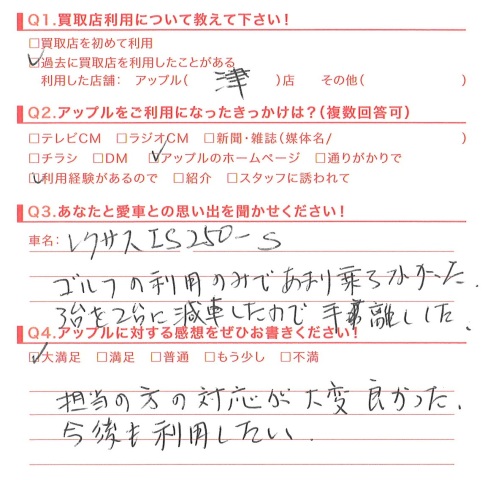 Q1.買取店利用について教えて下さい!
□買取店を初めて利用
☑過去に買取店を利用したことがある
利用した店舗: アップル( 津 )店 その他( )
Q2.アップルをご利用になったきっかけは?(複数回答可)
□テレビCM □ラジオCM □新聞・雑誌(媒体名/ )
□チラシ □DM ☑アップルのホームページ □通りがかりで
☑利用経験があるので □紹介 □スタッフに誘われて
Q3.あなたと愛車との思い出を聞かせください!
車名: レクサス IS250-S
ゴルフの利用のみであまり乗らなかった.
3台を2台に減車したので手離しした.
Q4.アップルに対する感想をぜひお書きください!
☑大満足 □満足 □普通 □もう少し □不満
担当の方の対応が大変良かった.
今後も利用したい.